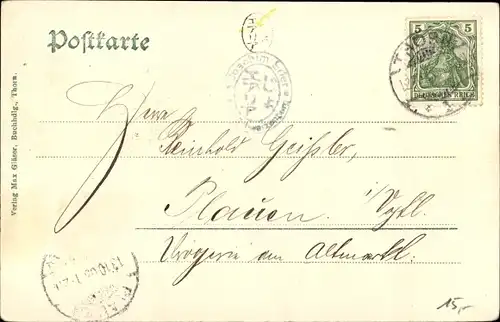 Postkarte
5 5
DEUTSCHES REICH
THORN
Herrn
Reinhold Geißler,
Plauen i/Vgtl.
Drogerie am Altmarkt.
Verlag Max Gläser, Buchhdlg., Thorn.
15,-